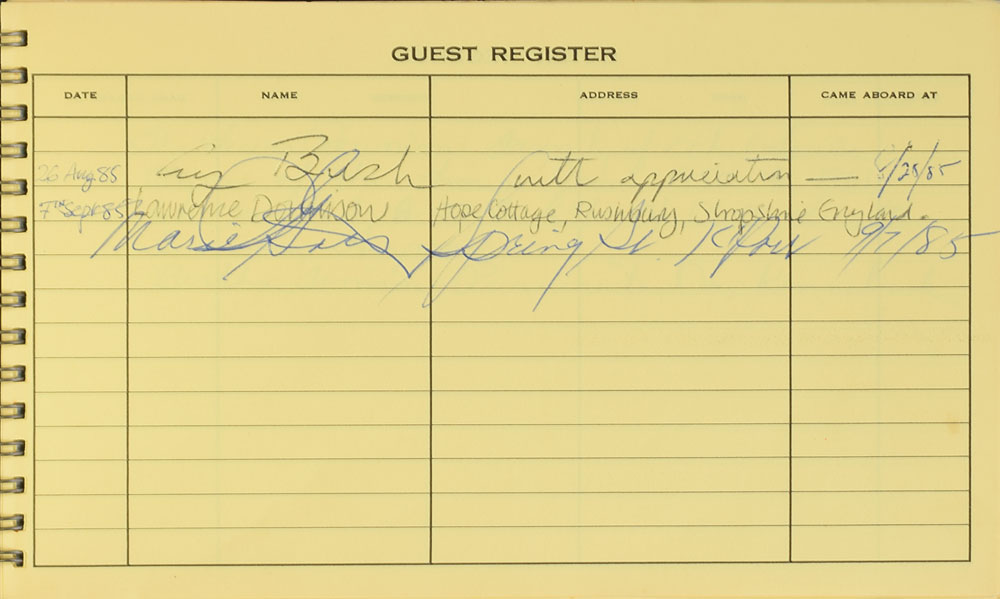 GUEST REGISTER
DATE NAME ADDRESS CAME ABOARD AT
26 Aug 85 Bash with appreciation — 8/28/85
7th Sept 85 Lawrence Hope Cottage, Rushbury, Shropshire England.
Marie Spring St. 9/7/85